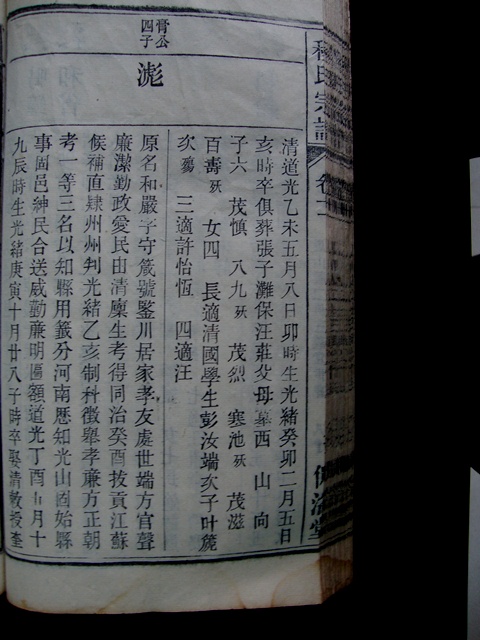 氏宗譜
卷十
清道光乙未五月八日卯時生光緒癸卯二月五日
亥時卒俱葬張子灘保汪莊父母墓西 山 向
子六 茂慎 八九殀 茂烈 塞池殀 茂滋
百壽殀 女四 長適清國學生彭汝端次子叶箎
次殤 三適許怡恆 四適汪
胥公
四子
滮
原名和嚴字守箴號鑒川居家孝友處世端方官聲
廉潔勤政愛民由清廩生考得同治癸酉拔貢江蘇
候補直隸州州判光緒乙亥制科徵舉孝廉方正朝
考一等三名以知縣用籤分河南歷知光山固始縣
事固邑紳民合送威勤廉明匾額道光丁酉九月十
九辰時生光緒庚寅十月廿八子時卒娶清教授奎